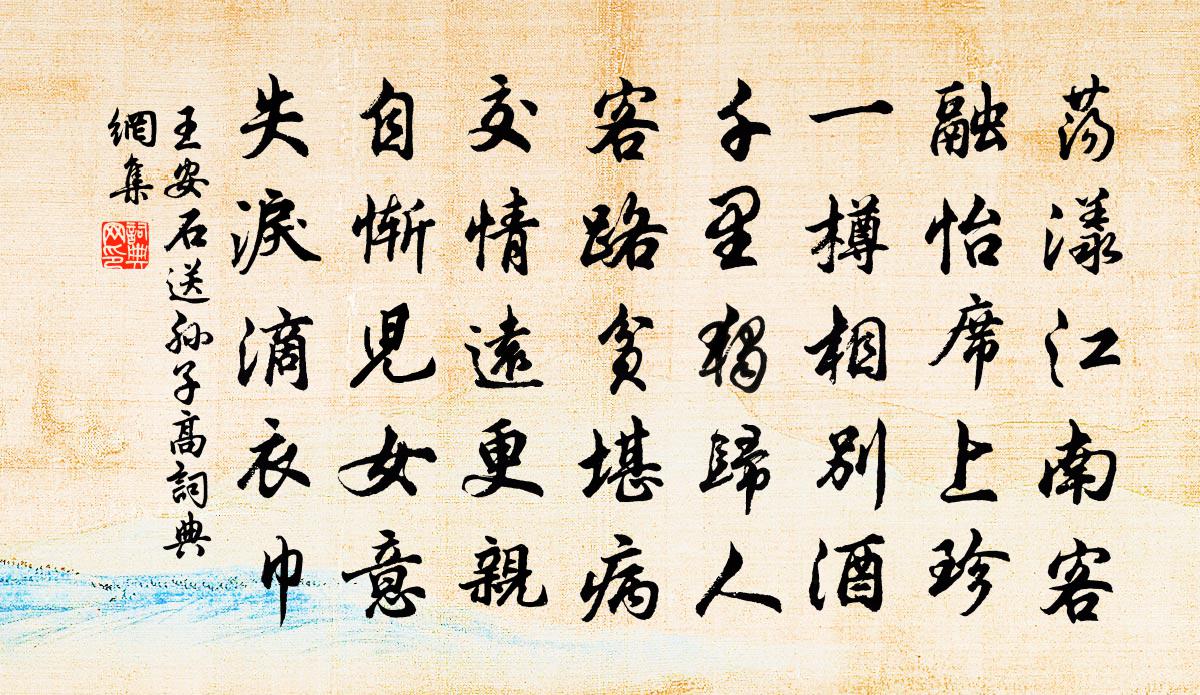 蕩漾江南客
融怡席上珍
一樽相別酒
千里獨歸人
客路貧堪病
交情遠更親
自慚兒女意
失淚滴衣巾
王安石送孫子高詞典
網集
詞典
网印